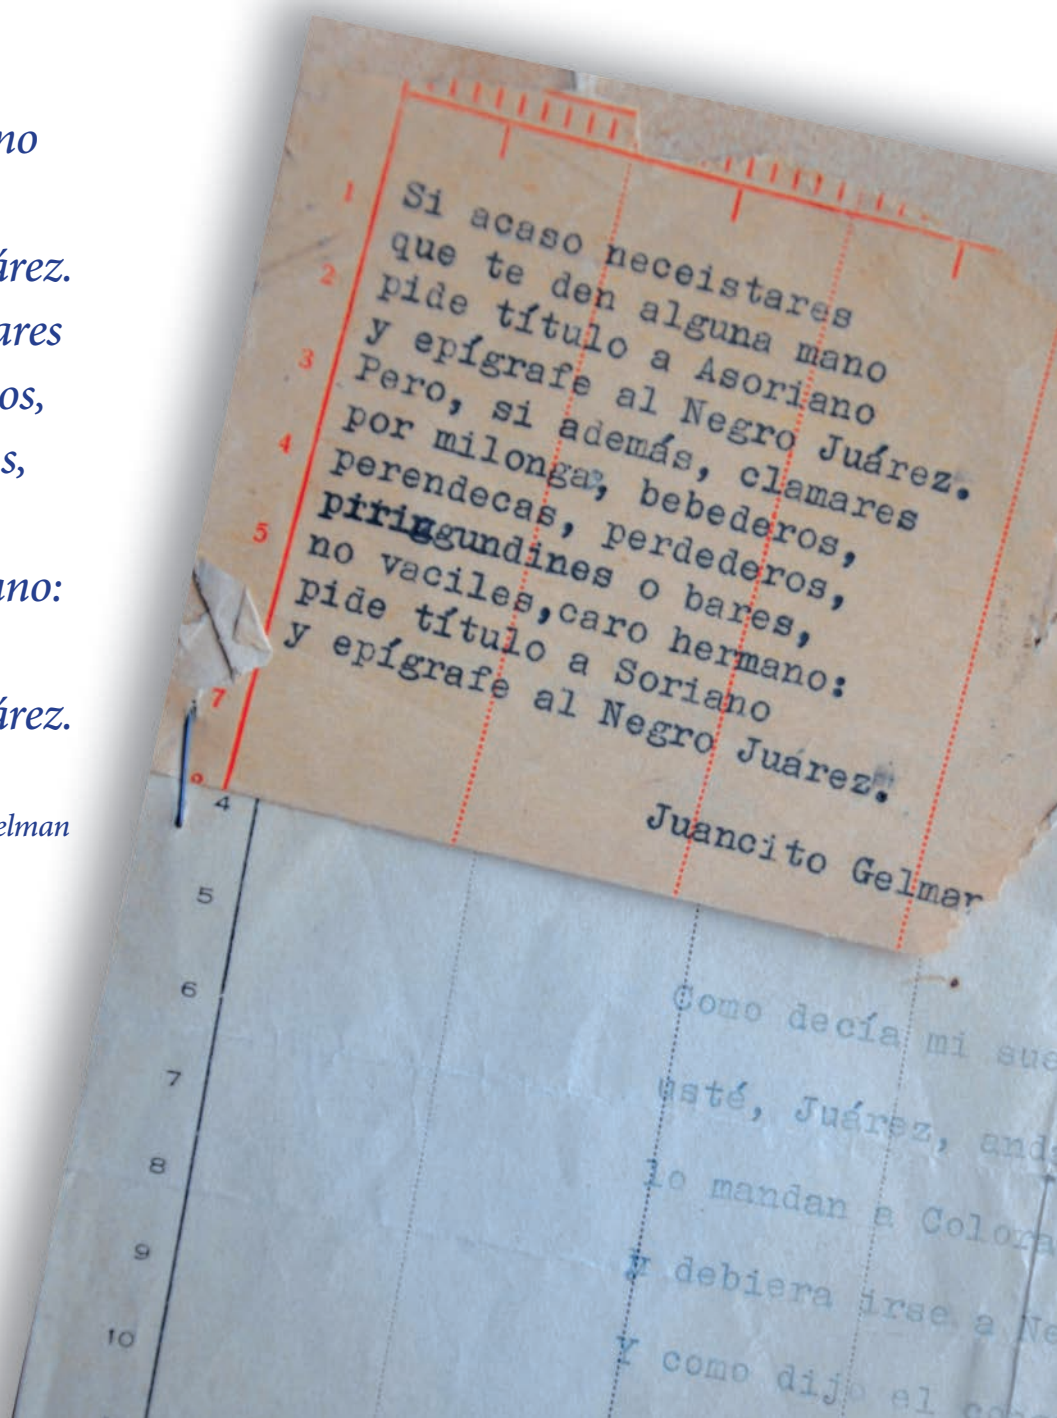 no
árez.
ares
os,
s,
ano:
árez.
elman
1
2
3
4
5
7
Si acaso neceistares
que te den alguna mano
pide título a Asoriano
y epígrafe al Negro Juárez.
Pero, si además, clamares
por milonga, bebederos,
perendecas, perdederos,
piringgundines o bares,
no vaciles,caro hermano:
pide título a Soriano
y epígrafe al Negro Juárez.
Juancito Gelman
4
5
6
7
8
9
10
Como decía mi sue
usté, Juárez, anda
lo mandan a Colora
y debiera irse a Ne
y como dijo el